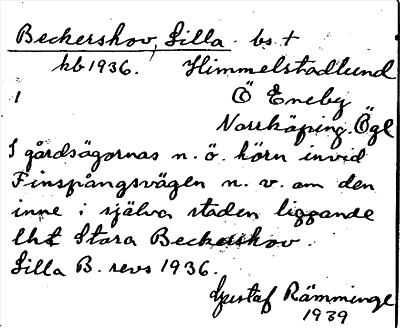 Beckershov, Lilla. bs. †
kb 1936. Himmelstadlund
1 Ö Eneby
Norrköping. Ögl
I gårdsägornas n. ö. hörn invid
Finspångsvägen n. v. om den
inne i själva staden liggande
lht Stora Beckershov.
Lilla B. revs 1936.
Gustaf Rämminge
1939